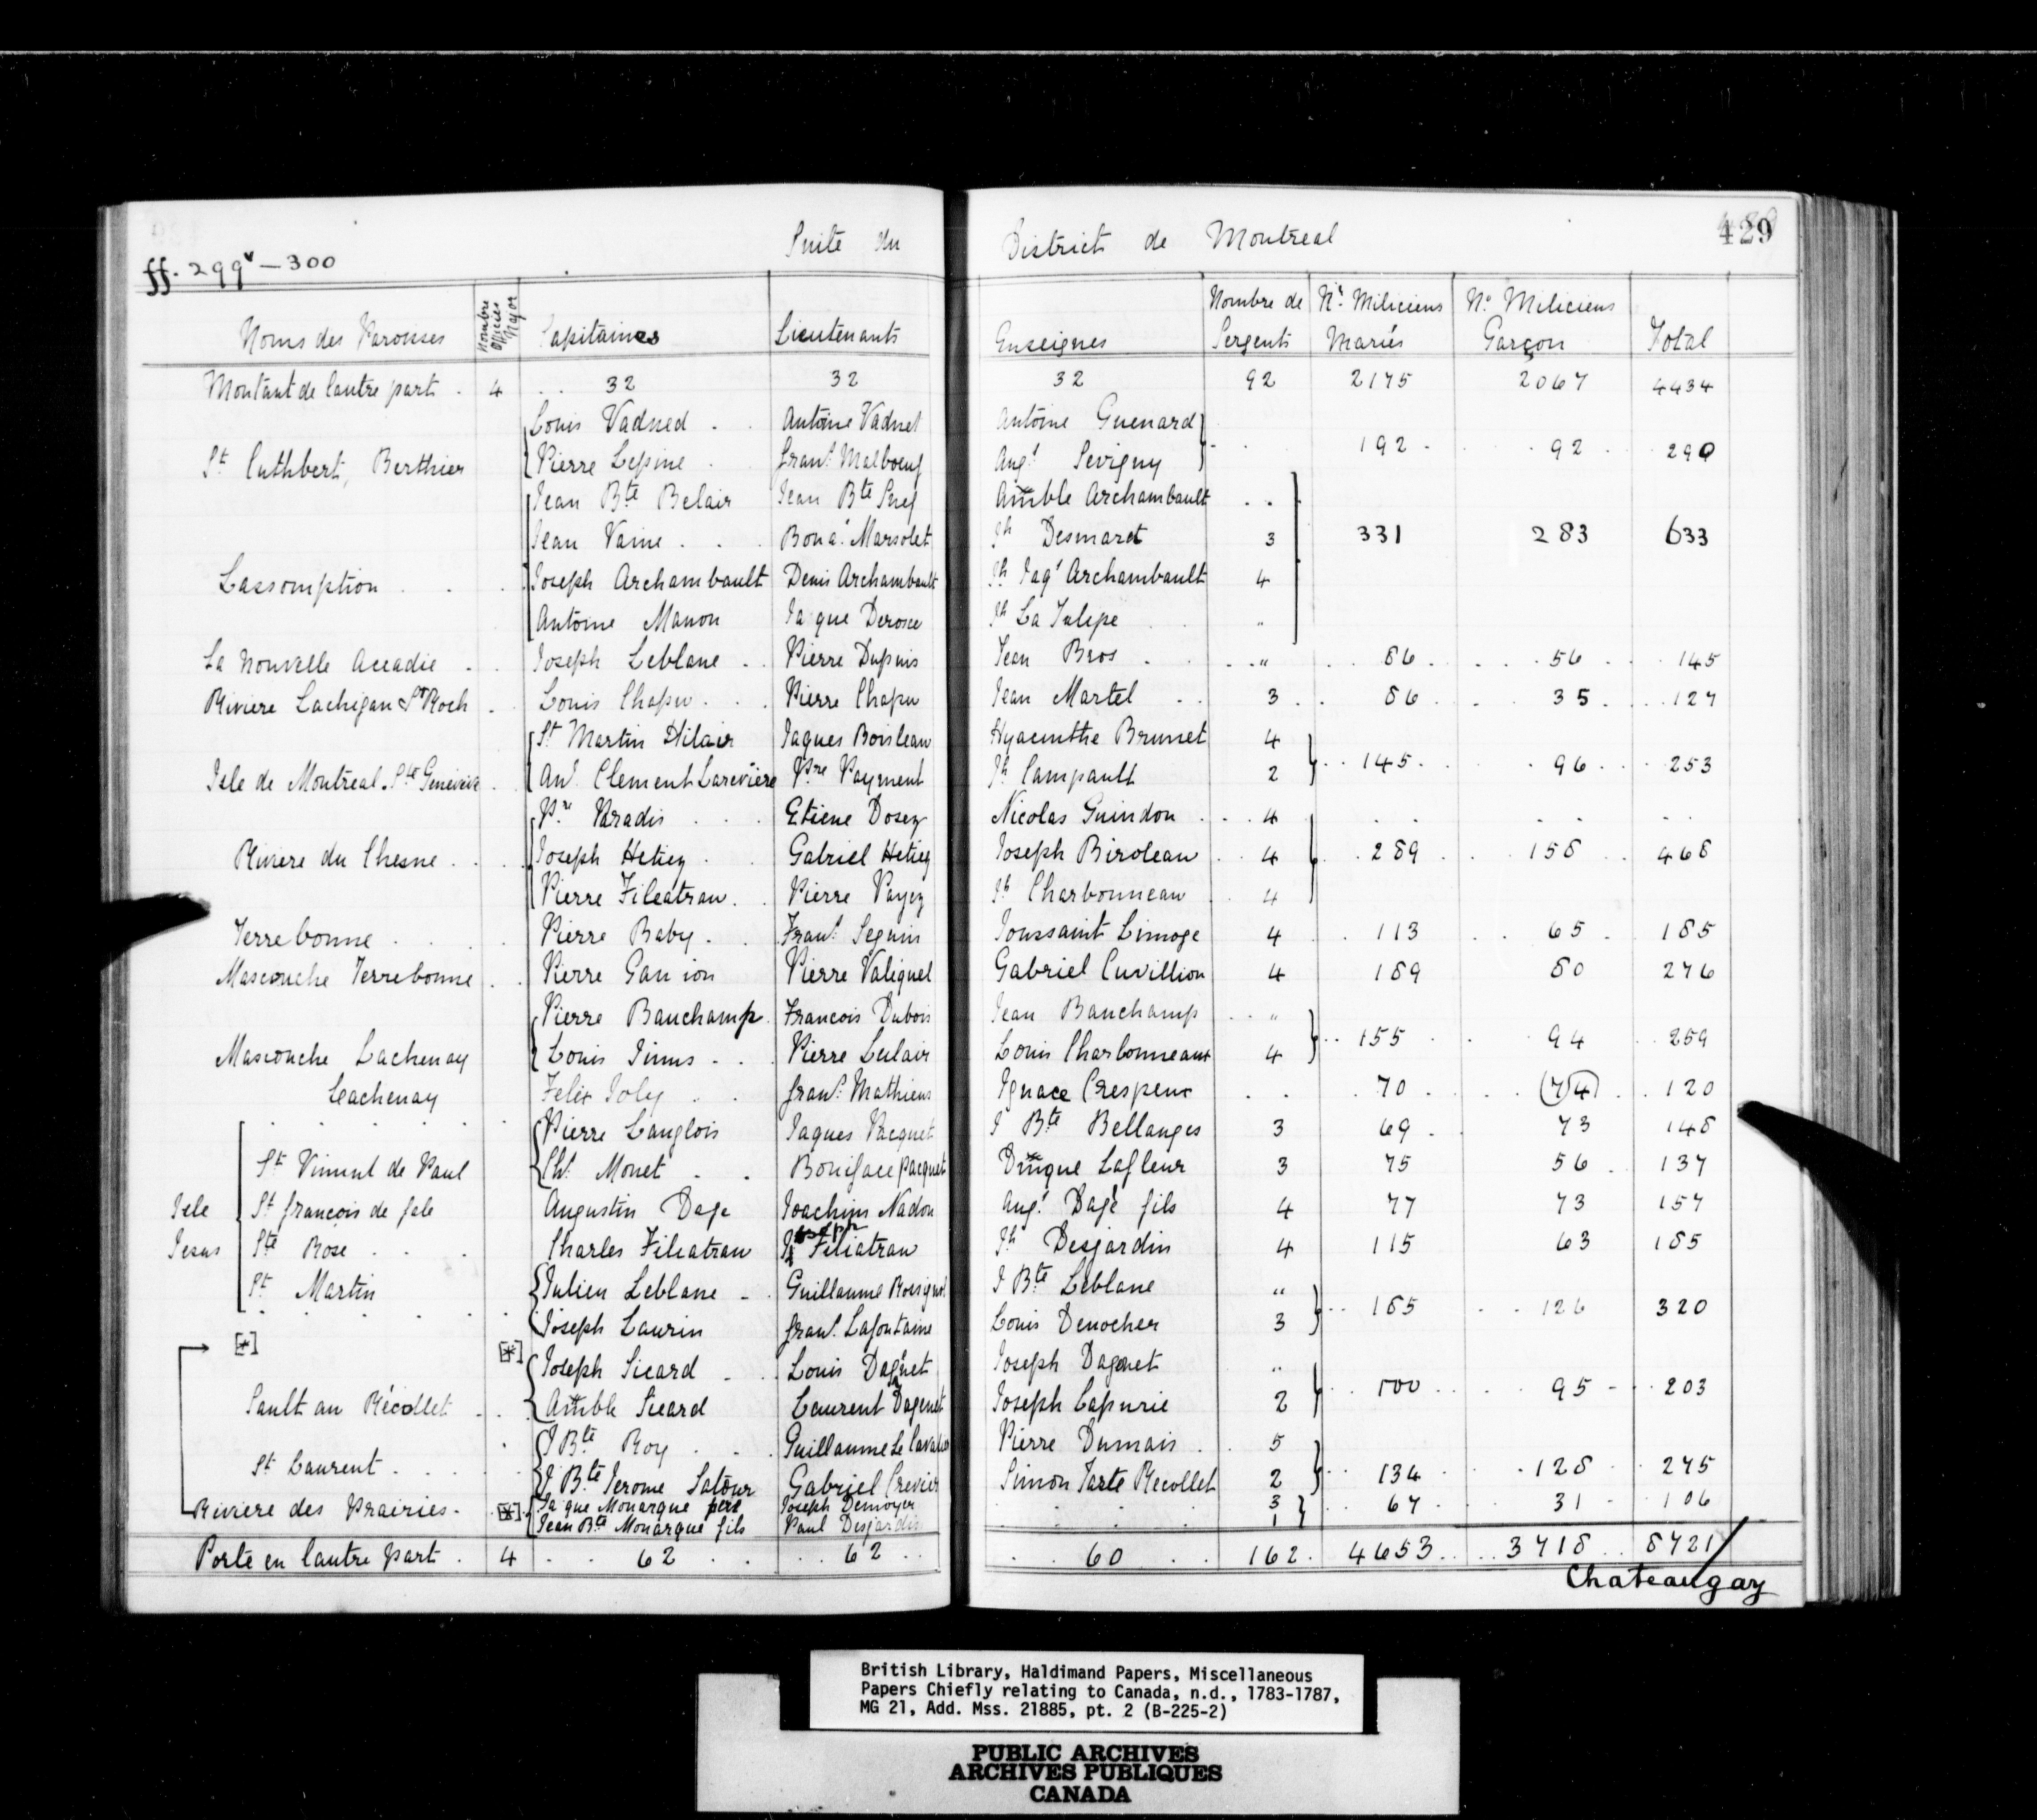 429
Suite du District de Montreal
ff. 299v — 300
Noms des Paroisses Nombre officier Major Capitaines Lieutenants Enseignes Nombre de Sergents No. Miliciens Mariés No. Miliciens Garçon Total
Montant de lautre part . 4 . . 32 32 32 92 2175 2067 4434
Louis Vadned . Antoine Vadnel Antoine Guenard
St Cuthbert, Berthier Pierre Lepine . franS. Malboeuf Augt. Sevigny 192 . 92 . 290
Jean Bte Belair Jean Bte Amble Archambault . .
Jean Vaine . . . Bona. Marsolet Jh Desmaret 3 331 283 633
Lassomption . . . Joseph Archambault Denis Archambault Jh Jaqs Archambault 4
Antoine Manon Jaque Derosie Jh La Tulipe "
La Nouvelle Accadie . . Joseph Leblanc . . Pierre Dupuis Jean Bros . . . " . . 86 . . . . 56 . . 145
Riviere Lachigan & St Roch . Louis Chapu . . . Pierre Chapu Jean Martel . . 3 . . 86 . . 35 . . . 127
St Martin Hilair Jaques Boisleau Hyacinthe Brunet 4
Isle de Montreal. Ste Genevieve . Ant. Clement Lareviere Pre Payment Jh Campault 2 . . 145 . . 96 . . . 253
Pre Paradis . . . Etiene Dosez Nicolas Guindon . . . 4
Riviere du Chesne . . . Joseph Hetiez . Gabriel Hetiez Joseph Biroleau . . 4 . . 289 . . 158 . . 468
Pierre Fileatrau . . Pierre Payez Jh Charbonneau . . 4
Terrebonne . . . . Pierre Baby . . Frans. Seguin Toussaint Limoge 4 . . 113 . . 65 . 185
Mascouche Terrebonne . . Pierre Gan ion Pierre Valiquel Gabriel Cuvillion 4 189 80 276
Pierre Bauchamp . Francois Dubois Jean Bauchamp . . "
Mascouche Lachenay Louis Jinns . . . Pierre Leclair Louis Charbonneaux 4 . . 155 . . 94 . . 259
Lachenay Felix Joly . . franS. Mathieus Ignace Crespeux . . . 70 . . . . (74) . . 120
. . . . . Pierre Langlois Jaques Pacquet J Bte Bellanges 3 69 . 73 148
St Vincent de Paul Cht. Monet . . Boniface pacquet Dmque Lafleur 3 75 56 . 137
Isle St francois de Sale Augustin Dage Joachim Nadon Augt. Dagé fils 4 77 73 157
Jesus Ste Rose . . . Charles Filiatrau Joseph Filiatrau Jh Desjardin 4 115 63 185
St Martin Julien Leblanc . . Guillaume Rossignol J Bte Leblanc "
. . . . . Joseph Laurin franS. Lafontaine Louis Denocher 3 . . 185 . . 126 320
[*] [*] Joseph Sicard . . Louis Dagnet Joseph Dagenet "
Sault au Récollet . . . Amble Sicard Laurent Dagenet Joseph Lapurie 2 . . 100 . . . 95 - . . 203
J Bte Roy . . . Guillaume Le Cavalier Pierre Dumais . . 5
St Laurent . . . . J Bte Jerome Latour Gabriel Crevier Simon Tarte Recollet 2 . . 134 . 128 . . 275
Riviere des Prairies . [*] Jaque Monarque pere Joseph Demoyer 3 . . 67 . . 31 - . 106
Jean Bte Monarque fils Paul Desjardis 1
Porte en lautre part . 4 . . 62 . . . . 62 . . . . 60 . . 162 . 4653 . . . . 3718 . . 8721
Chateaugay
British Library, Haldimand Papers, Miscellaneous
Papers Chiefly relating to Canada, n.d., 1783-1787,
MG 21, Add. Mss. 21885, pt. 2 (B-225-2)
PUBLIC ARCHIVES
ARCHIVES PUBLIQUES
CANADA